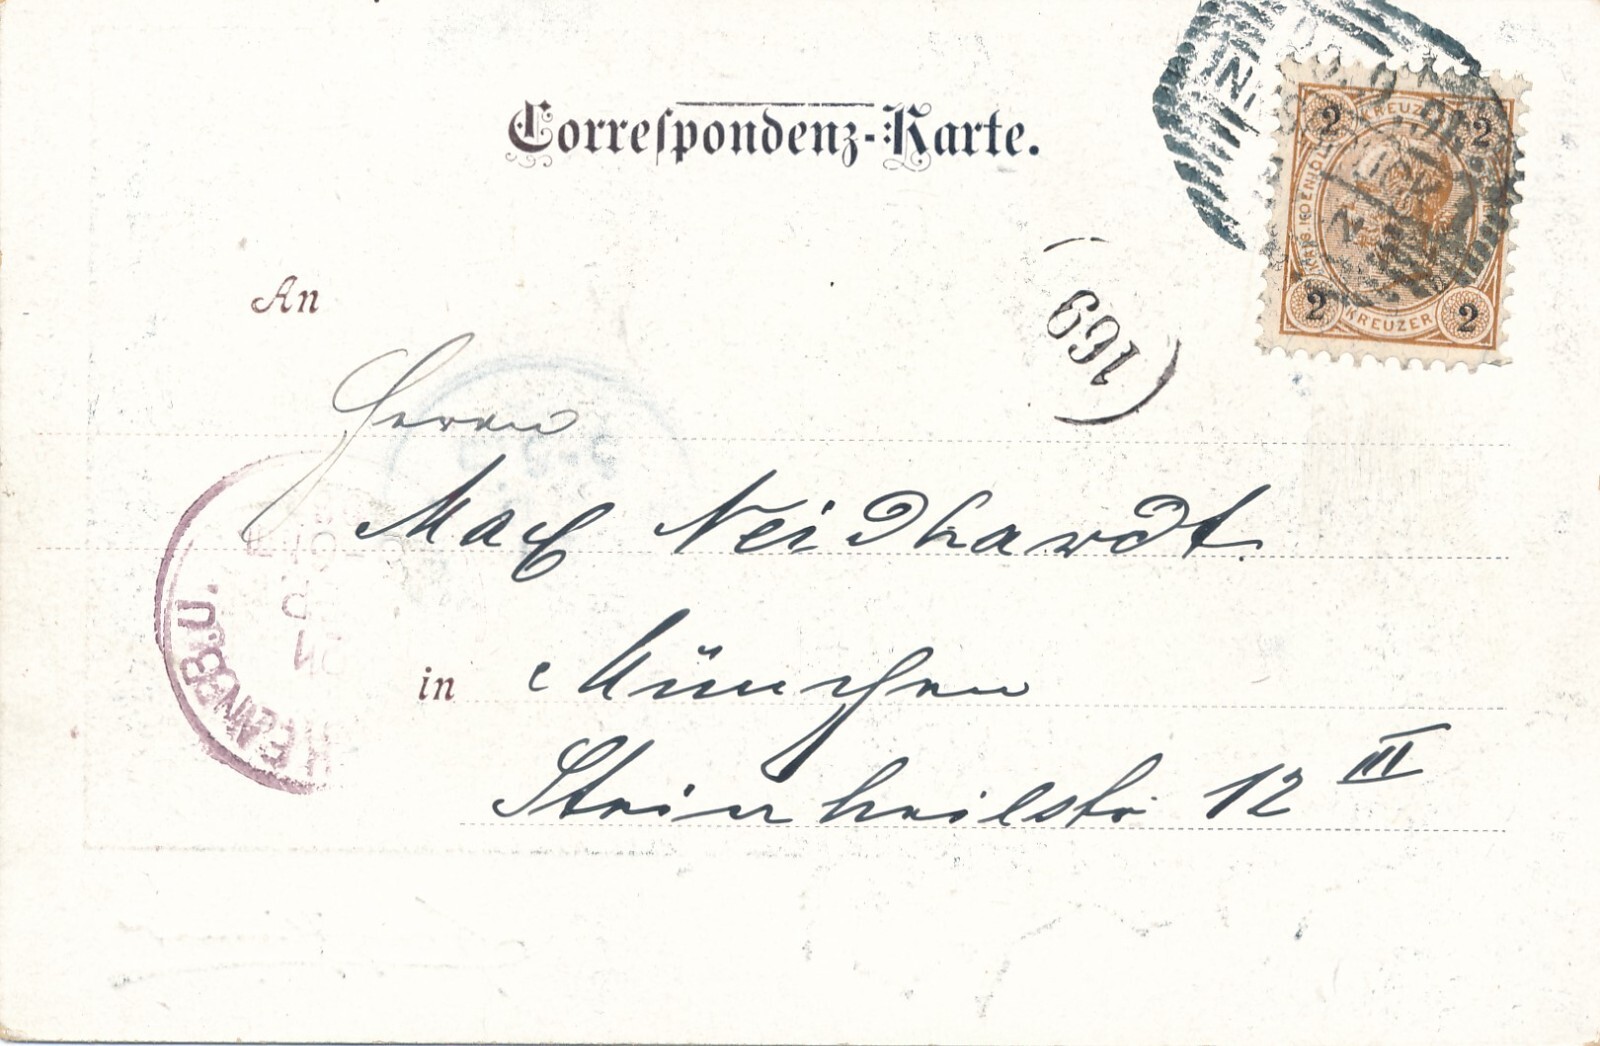 Correspondenz-Karte.
2 KREUZER 2
2 KREUZER 2
An
169
Herrn
Max Neidhardt
in München
Steinheilstr. 12 III